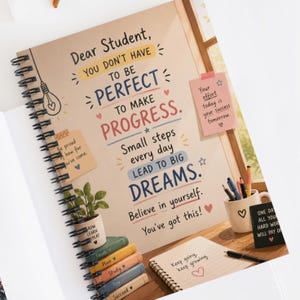 Dear Student,
YOU DON'T HAVE
TO BE
PERFECT
TO MAKE
PROGRESS.
Small steps
every day
LEAD TO BIG
DREAMS.
Believe in yourself.
You've got this!
Your
effort
today is
your success
tomorrow
Keep going,
keep growing.
ONE DAY